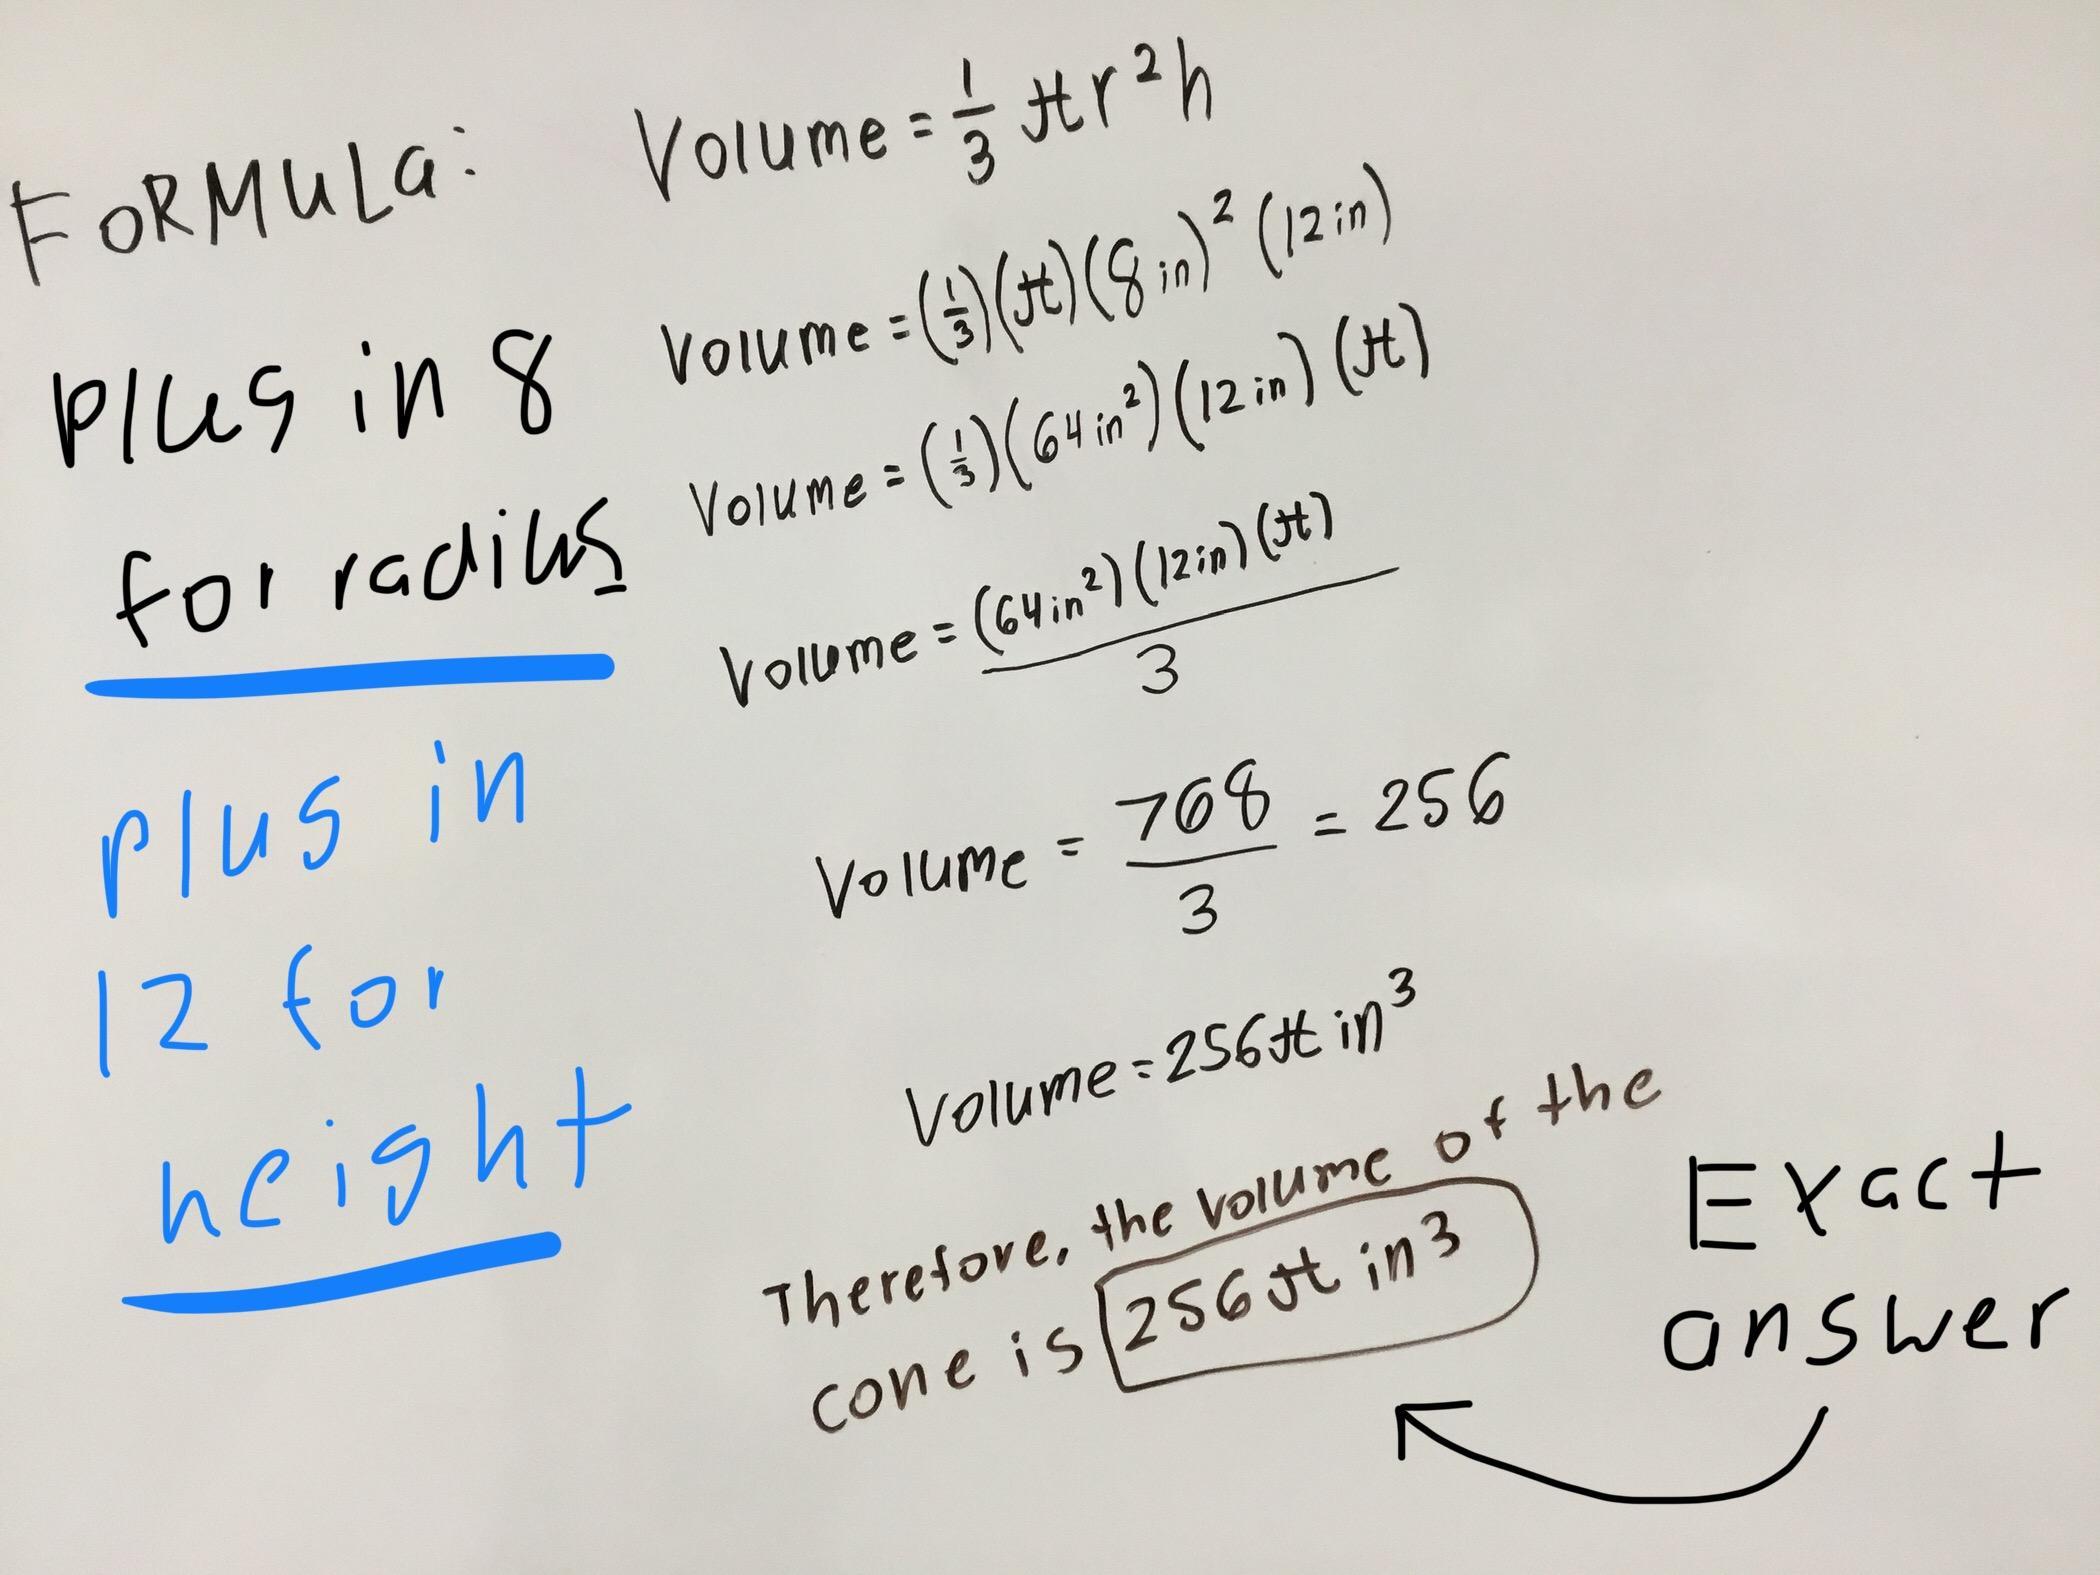 FORMULa: Volume = 1/3 πr²h
Plug in 8
for radius
Volume = (1/3)(π)(8 in)² (12 in)
Volume = (1/3)(64 in²)(12 in)(π)
Volume = (64 in²)(12 in)(π) / 3
plug in
12 for
height
Volume = 768/3 = 256
Volume = 256π in³
Therefore, the volume of the
cone is 256π in³
Exact
answer